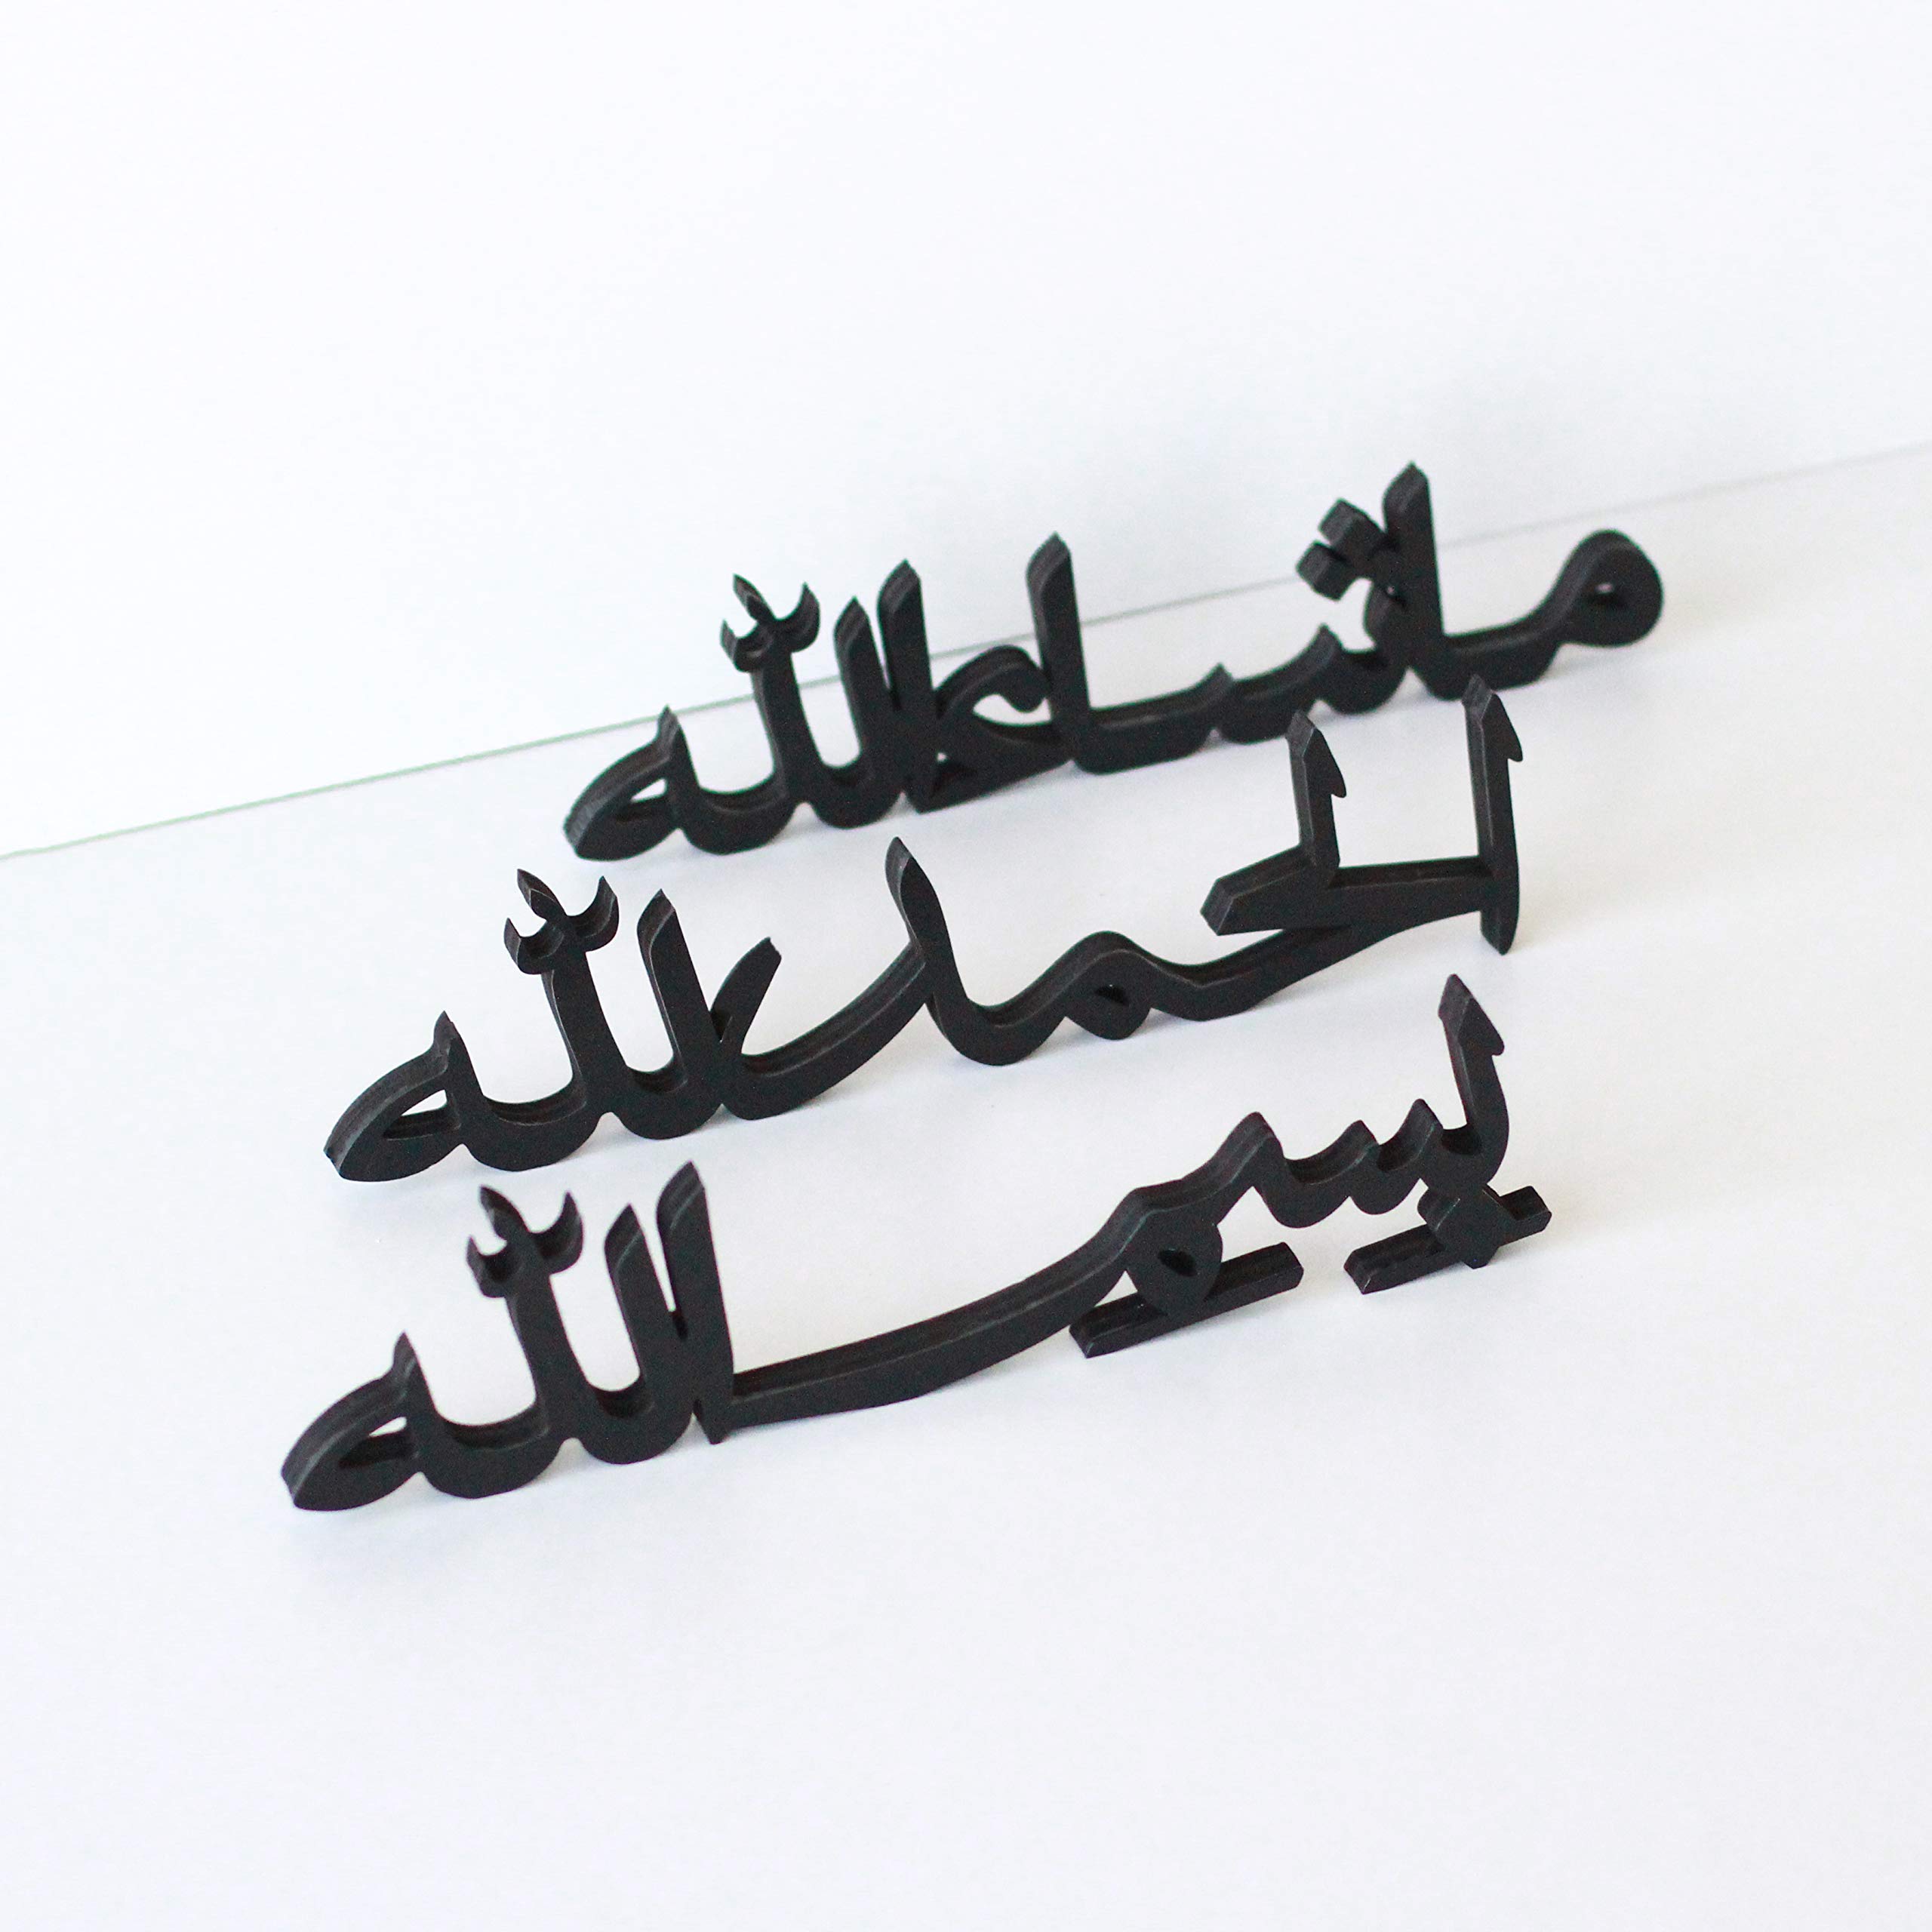 ماشاء الله
الحمد لله
بِسْمِ الله